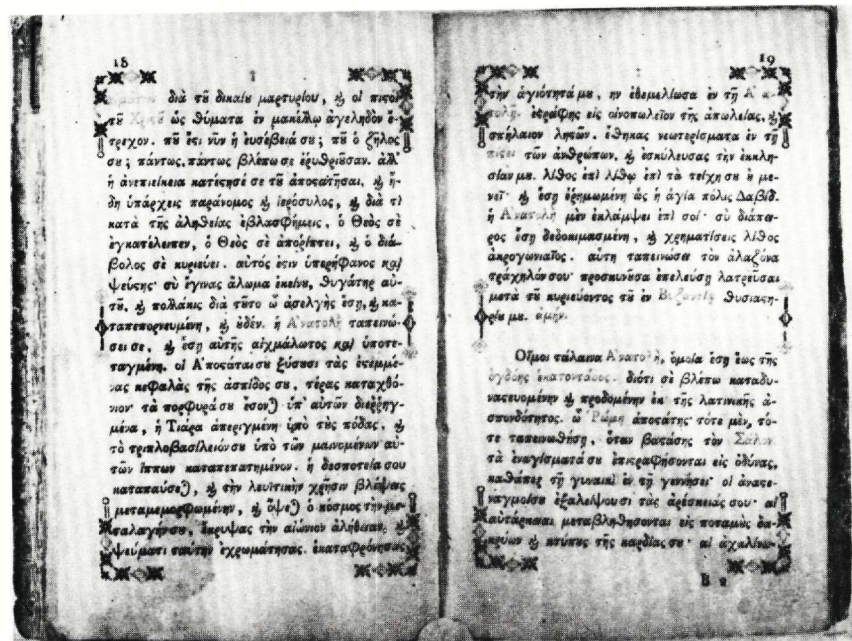 18
διὰ τȣ͂ δικαίȣ μαρτυρίου, ϗ οἱ πιςοί
τȣ͂ ὡς θύματα ἐν μακέλλῳ ἀγεληδὸν ἔ-
τρεχον. πȣ͂ ἔςι νῦν ἡ ευσέβειά σȣ; πȣ͂ ὁ ζῆλος
σȣ; πάντως, πάντως βλέπω σε ἐρυθριῶσαν. ἀλλ'
ἡ ἀνεπιείκεια κατέςησέ σε τȣ͂ ἀποςατῆσαι. ϗ ἤ-
δη ὑπάρχεις παράνομος ϗ ἱερόσυλος, ϗ διὰ τὶ
κατὰ τῆς ἀληθείας ἐβλασφήμεις, ὁ Θεὸς σὲ
ἐγκατέλειπεν, ὁ Θεὸς σὲ ἀποῤῥίπτει, ϗ ὁ διά-
βολος σὲ κυριεύει. αὐτός ἐςιν ὑπερήφανος καὶ
ψεύςης· σὺ ἔγινας ἅλωμα ἐκείνȣ, θυγάτηρ αὐ-
τȣ͂, ϗ πολλάκις διὰ τȣ͂το ὦ ἀσελγὴς ἔσῃ, ϗ κα-
ταπεπορνευμένη, ϗ ȣ̓δέν. ἡ Ἀνατολὴ ταπεινώ-
σει σε, ϗ ἔσῃ αὐτῆς αἰχμάλωτος καὶ ὑποτε-
ταγμένη. οἱ Ἀποςάται σȣ ξύσȣσι τὰς ἐςεμμέ-
νας κεφαλὰς τῆς ἀσπίδος σȣ, τέρας καταχθό-
νιον· τὰ πορφυρά σȣ ἔσον) ὑπ' αὐτῶν διεῤῥηγ-
μένα, ἡ Τιάρα ἀπεριγμένη ὑπὸ τȣ̀ς πόδας. ϗ
τὸ τριπλοβασίλειόν σȣ ὑπὸ τῶν μαινομένων αὐ-
τῶν ἵππων καταπεπατημένον. ἡ δεσποτεία σου
καταπαύσε), ϗ τὴν λευϊτικὴν χρῆσιν βλέψεις
μεταμεμορφωμένην, ϗ ὄψε) ὁ κόσμος τὴν με-
ταλαγήν σȣ, ἔκρυψας τὴν αἰώνιον ἀλήθειαν, ϗ
ψεύματι ταύτην ἐχρωμάτησας. ἐκαταφρόνησας
19
τὴν ἁγιότητά μȣ, ἣν ἐθεμελίωσα ἐν τῇ Ἀνα-
τολῇ. ἐςράφης εἰς οἰνοπωλεῖον τῆς ἀπωλείας, ϗ
σπήλαιον λῃςῶν. ἔθηκας νεωτερίσματα ἐν τῇ
πίςει τῶν ἀνθρώπων, ϗ ἐσκύλευσας τὴν ἐκκλη-
σίαν μȣ. λίθος ἐπὶ λίθῳ ἐπὶ τὰ τείχη σȣ ȣ̓ με-
νεῖ· ϗ ἔσῃ ἐρημωμένη ὡς ἡ ἁγία πόλις Δαβίδ.
ἡ Ἀνατολὴ μὲν ἐκλάμψει ἐπὶ σοί· σὺ διάπει-
ρος ἔσῃ δεδοκιμασμένη, ϗ χρηματίσεις λίθος
ἀκρογωνιαῖος. αὕτη ταπεινώσει τὸν ἀλαζόνα
τράχηλόν σου· προσκυνῆσα ἐπελεύσῃ λατρεῦσαι
μετὰ τȣ͂ κυριεύοντος τȣ͂ ἐν Βυζαντίῳ θυσιαςη-
ρίȣ μȣ. ἀμήν.
Οἴμοι τάλαινα Ἀνατολὴ, ὁμοία ἔσῃ ἕως τῆς
ὀγδόης ἑκατοντάδος. διότι σὲ βλέπω καταδυ-
ναςευομένην ϗ προδομένην ἐκ τῆς λατινικῆς ἀ-
σπονδότητος. ὦ Ῥώμη ἀποςάτης· τότε μὲν, τό-
τε ταπεινωθήσῃ, ὅταν βαςάσῃς τὸν
τὰ ἐναγίσματά σȣ ἐπιςραφήσονται εἰς ὀδύνας,
καθάπερ τῇ γυναικὶ ἐν τῇ γεννήσει· οἱ ἀναςε-
ναγμοί σȣ ἐξαλείψουσι τὰς ἀρέσκειάς σου· αἱ
αὐτάρκειαι μεταβληθήσονται εἰς ποταμȣ̀ς δα-
κρύων ϗ κτύπȣς τῆς καρδίας σȣ· αἱ ἀχαλίνω-
B 2